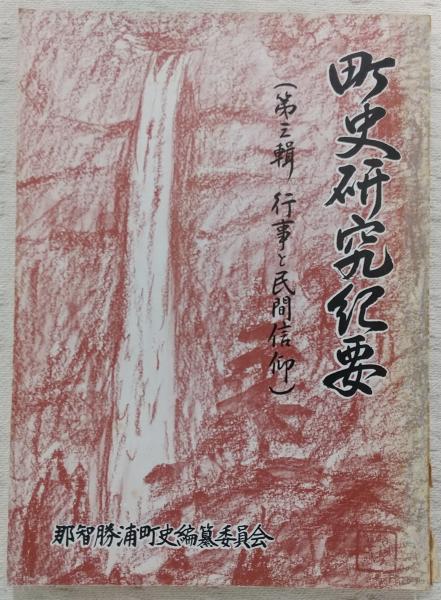 町史研究紀要
(第三輯 行事と民間信仰)
那智勝浦町史編纂委員会